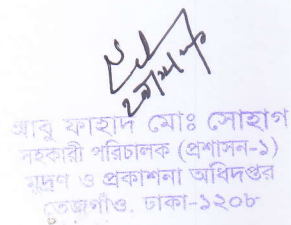 আবু ফাহাদ মোঃ সোহাগ
সহকারী পরিচালক (প্রশাসন-১)
মুদ্রণ ও প্রকাশনা অধিদপ্তর
তেজগাঁও, ঢাকা-১২০৮